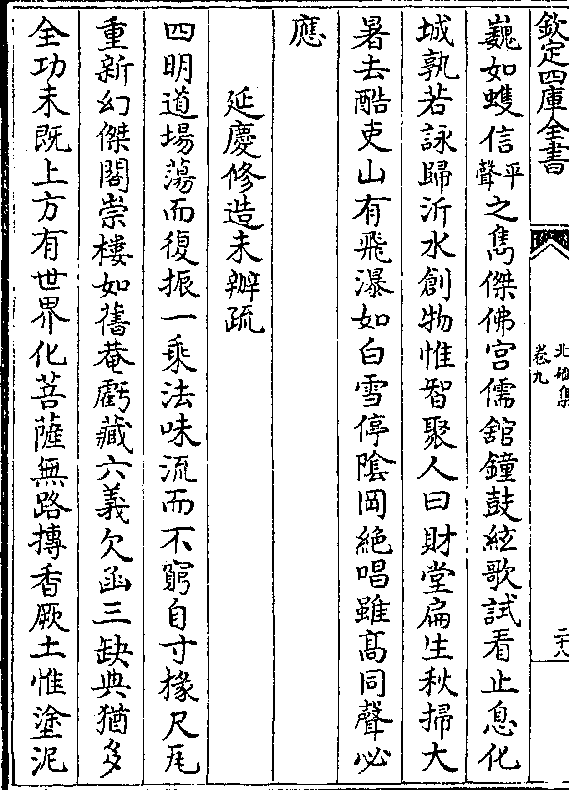 欽定四庫全書
北磵集
卷九
二十八
巍如蠖信平聲之雋傑佛宮儒舘鐘鼓絃歌試看止息化
城孰若詠歸沂水創物惟智聚人曰財堂扁生秋掃大
暑去酷吏山有飛瀑如白雪停陰岡絶唱雖髙同聲必
應
延慶修造未辦疏
四明道場蕩而復振一乘法味流而不窮自寸椽尺瓦
重新幻傑閣崇樓如舊菴虧藏六義欠函三缺典猶多
全功未既上方有世界化菩薩無路摶香厥土惟塗泥